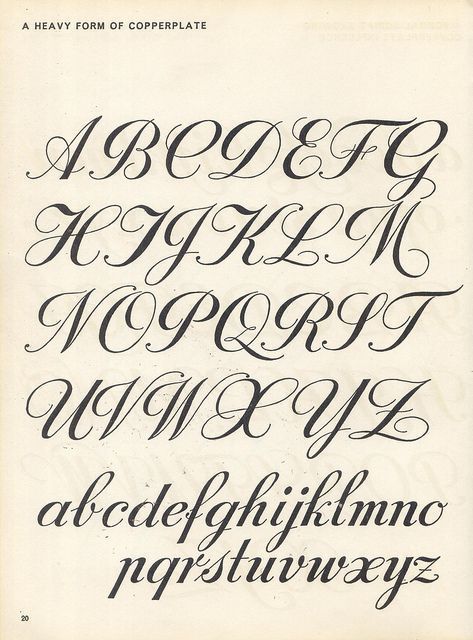 A HEAVY FORM OF COPPERPLATE
ABCDEFG
HIJKLM
NOPQRST
UVWXYZ
abcdefghijklmno
pqrstuvwxyz
20